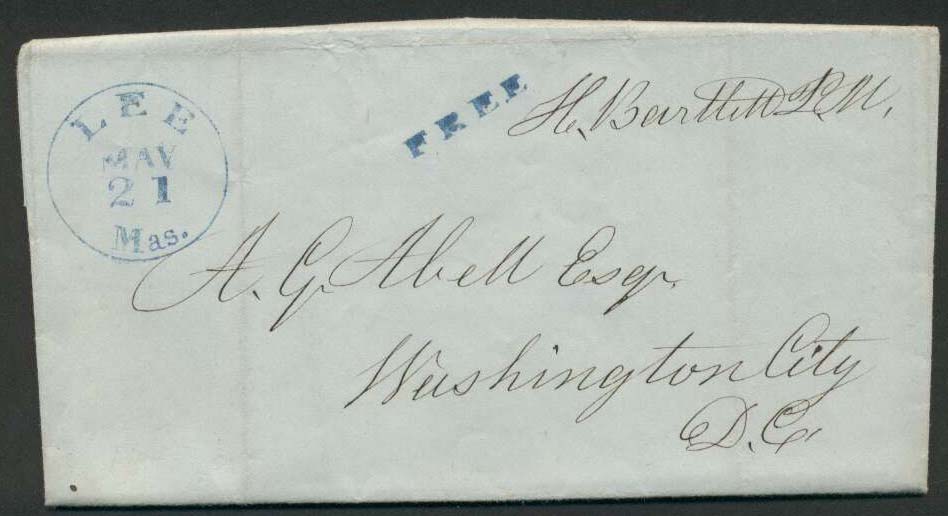 LEE
MAY
21
Mas.
FREE
H. Bartlett P.M.
A. G. Abell Esqr.
Washington City
D.C.